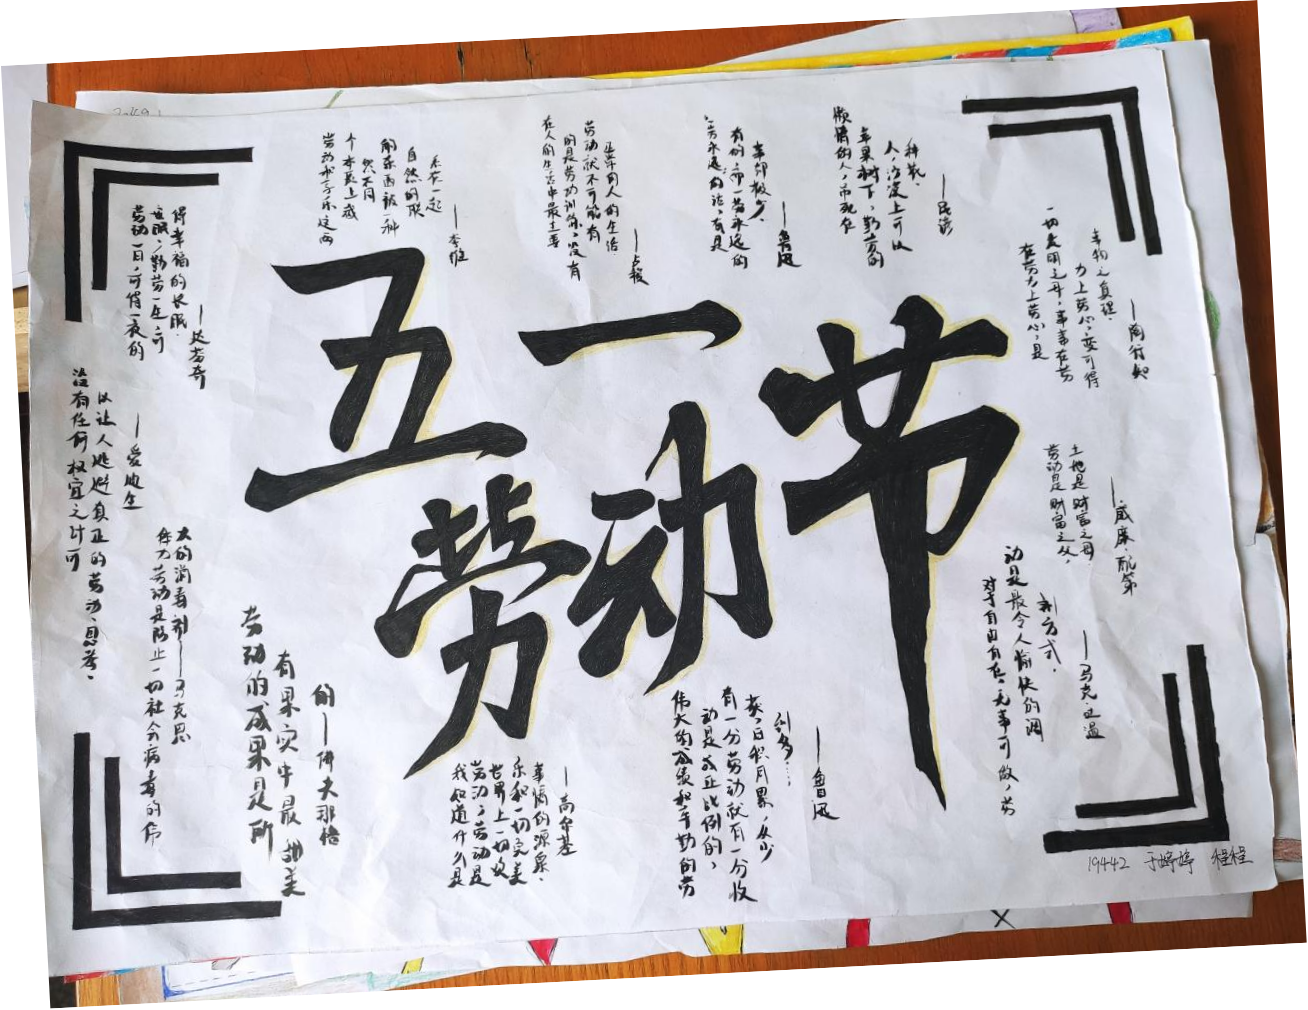 五一
劳动节
劳动一日,可得一夜的
安眠,勤劳一生,可
得幸福的长眠.
——达芬奇
没有任何权宜之计可
以让人逃避真正的劳动、思考.
——爱迪生
体力劳动是防止一切社会病毒的伟
大的消毒剂——马克思
劳动的成果是所
有果实中最甜美
的——伊夫那格
劳动和享乐这两
个本质上截
然不同
的东西被一种
自然的联
系在一起
——李维
在人的生活中最主要
的是劳动训练,没有
劳动就不可能有
正常的人的生活
——卢梭
一劳永逸的话,有是
有的,而一劳永逸的
事却极少
——鲁迅
懒惰的人,而死在
苹果树下,勤劳的
人,沙漠上可以
种栽.
——民谚
在劳力上劳心,是
一切发明之母,事事在劳
力上劳心,变可得
事物之真理.
——陶行知
劳动是财富之父,
土地是财富之母
——威廉.配第
对于自由自在,无事可做,劳
动是最令人愉快的调
剂方式.
——马克.吐温
我知道什么是
劳动,劳动是
世界上一切欢
乐和一切完美
事情的源泉.
——高尔基
伟大的成绩和辛勤的劳
动是成正比例的,
有一分劳动就有一分收
获,日积月累,从少
到多…
——鲁迅
19442 于婷婷 程程